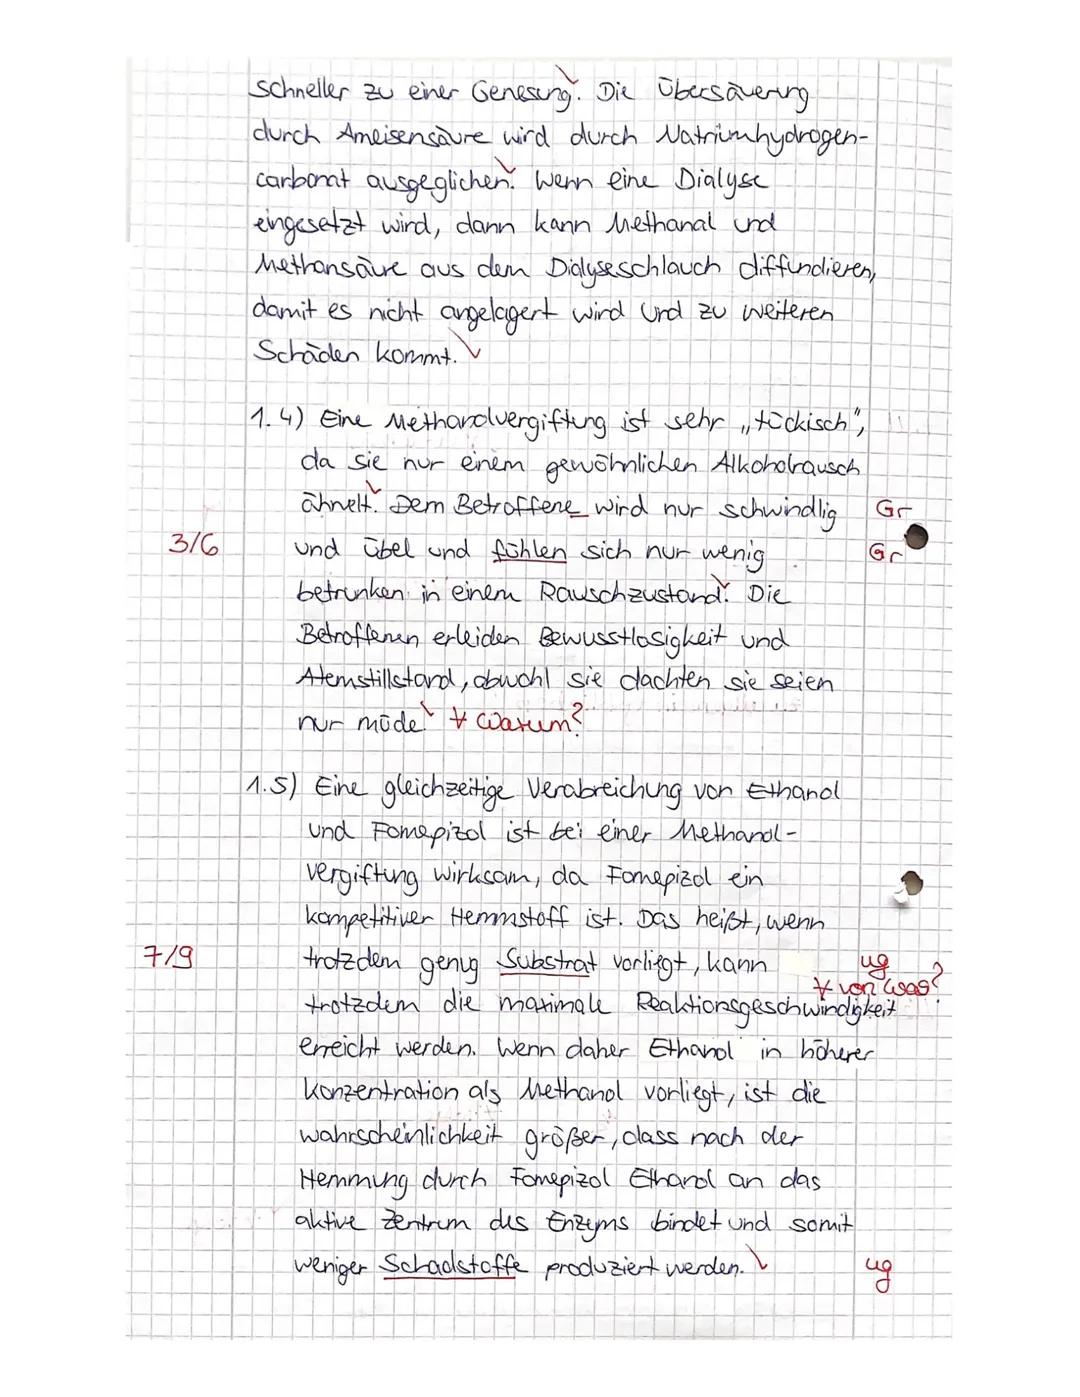 schneller zu einer Genesung. Die Übersäuerung
durch Ameisensäure wird durch Natriumhydrogen-
carbonat ausgeglichen. Wenn eine Dialyse
eingesetzt wird, dann kann Methanal und
Methansäure aus dem Dialyseschlauch diffundieren,
damit es nicht angelagert wird und zu weiteren
Schäden kommt.
1.4) Eine Methanolvergiftung ist sehr „tückisch",
da sie nur einem gewöhnlichen Alkoholrausch
ähnelt. Dem Betroffene wird nur schwindlig Gr
3/6 und übel und fühlen sich nur wenig Gr
betrunken in einem Rauschzustand. Die
Betroffenen erleiden Bewusstlosigkeit und
Atemstillstand, obwohl sie dachten sie seien
nur müde. Warum?
1.5) Eine gleichzeitige Verabreichung von Ethanol
und Fomepizol ist bei einer Methanol-
vergiftung wirksam, da Fomepizol ein
kompetitiver Hemmstoff ist. Das heißt, wenn
7/9 trotzdem genug Substrat vorliegt, kann ug
von was?
trotzdem die maximale Reaktionsgeschwindigkeit
erreicht werden. Wenn daher Ethanol in höherer
Konzentration als Methanol vorliegt, ist die
wahrscheinlichkeit größer, dass nach der
Hemmung durch Fomepizol Ethanol an das
aktive Zentrum des Enzyms bindet und somit
weniger Schadstoffe produziert werden. ug